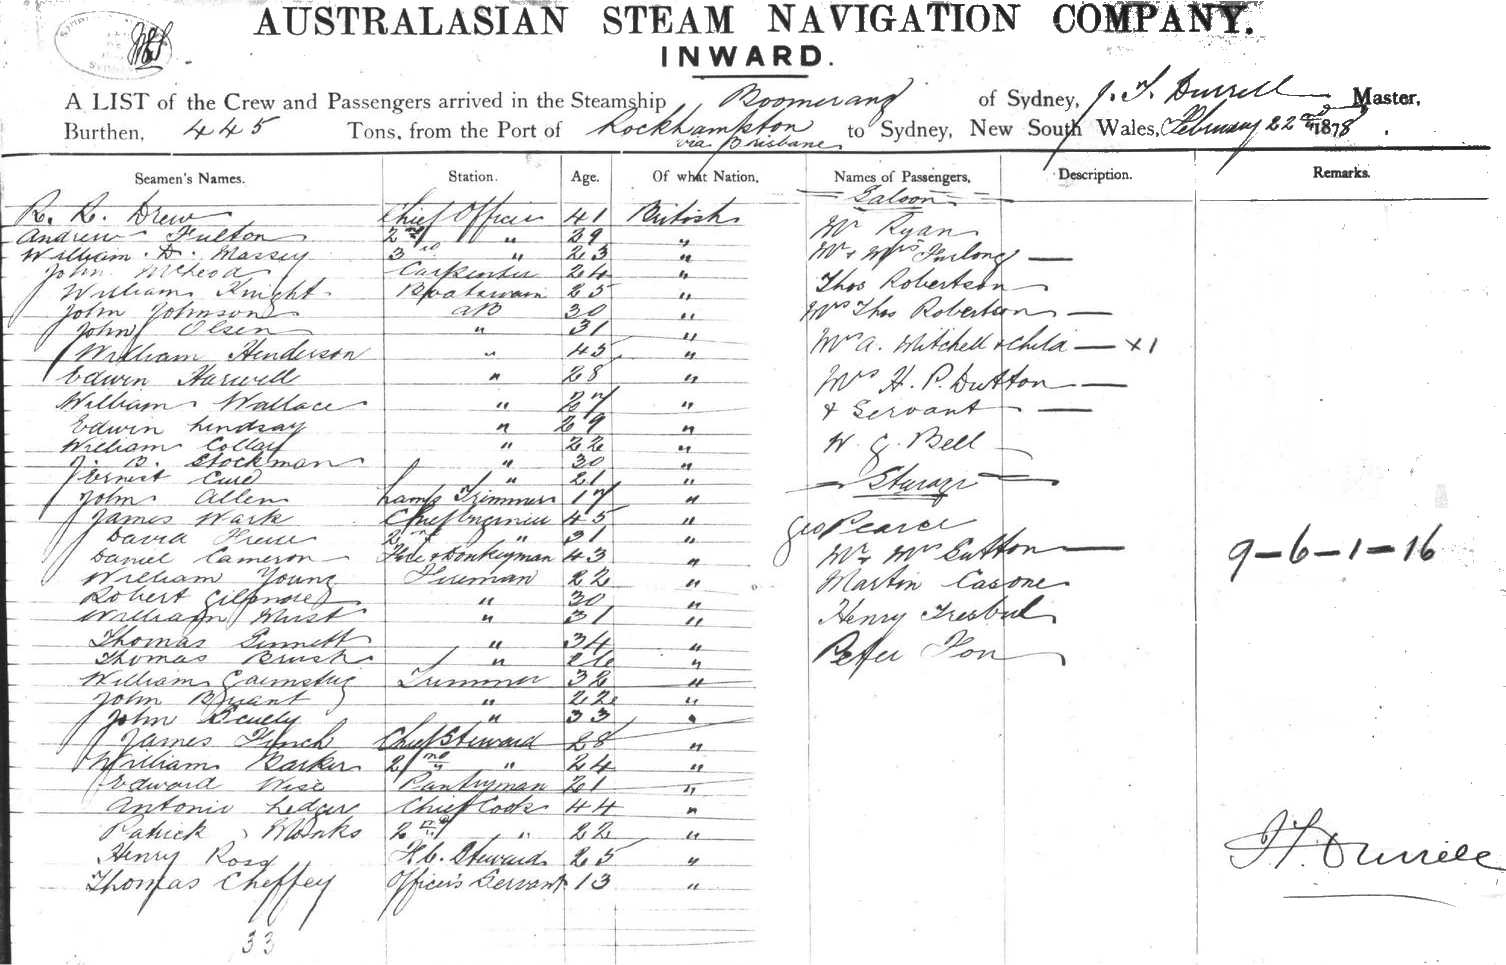 AUSTRALASIAN STEAM NAVIGATION COMPANY.
INWARD.
A LIST of the Crew and Passengers arrived in the Steamship Boomerang of Sydney, J. T. Durrell Master,
Burthen, 445 Tons, from the Port of Rockhampton via Brisbane to Sydney, New South Wales, February 22nd 1878.
Seamen's Names. Station. Age. Of what Nation. Names of Passengers, Description. Remarks.
R. R. Drew Chief Officer 41 British
Andrew Fulton 2nd " 29 "
William D. Massey 3rd " 23 "
John McLeod Carpenter 24 "
William Knight Boatswain 25 "
John Johnson AB 30 "
John Olsen " 31 "
William Henderson " 45 "
Edwin Harwell " 28 "
William Wallace " 27 "
Edwin Lindsay " 29 "
William Collay " 22 "
J. B. Stockman " 30 "
Ernest Cure " 21 "
John Allen Lamp Trimmer 17 "
James Wark Chief Engineer 45 "
David " 31 "
Daniel Cameron & Donkeyman 43 "
William Young Fireman 22 "
Robert Gilmore " 30 "
William Muist " 31 "
Thomas Sinnett " 34 "
Thomas Brush " 26 "
William Trimmer 32 "
John Bryant " 22 "
John Scully " 33 "
James Finch Chief Steward 28 "
William Barker 2nd " 24 "
Edward Wise Pantryman 21 "
Antonio Ledger Chief Cook 44 "
Patrick Monks 2nd " 22 "
Henry Rose F.C. Steward 25 "
Thomas Cheffey Officer's Servant 13 "
33
Saloon
Mr Ryan
Mr & Mrs Furlong —
Thos Robertson
Mrs Thos Robertson —
Mrs A. Mitchell & Child — x1
Mrs H. P. Dutton —
& Servant —
W. G. Bell
Steerage
Geo Pearce
Mr & Mrs Sutton —
Martin Casone
Henry
Peter Fon
9-6-1-16
J T. Durrell